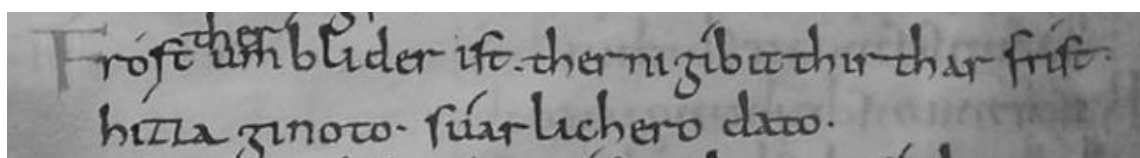 Fróst ther umblíder ist. ther ni gíbit thir thar fríst.
hízza ginoto. súarlichero dato.